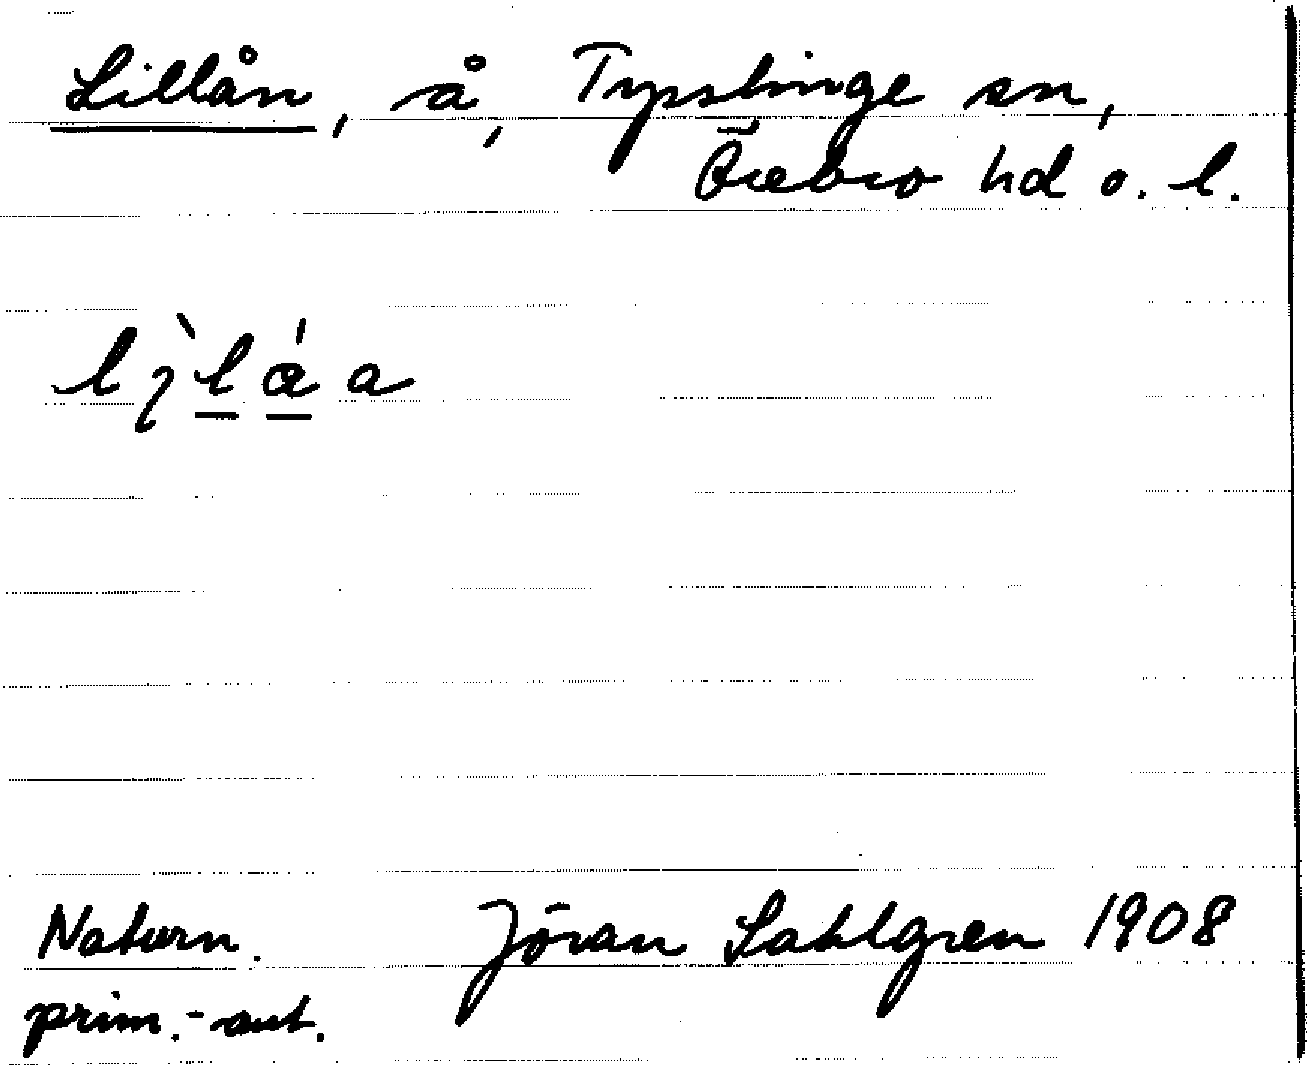 Lillån, å, Tysslinge sn,
Örebro hd o. l.
Naturn. Jöran Sahlgren 1908
prim.-ant.